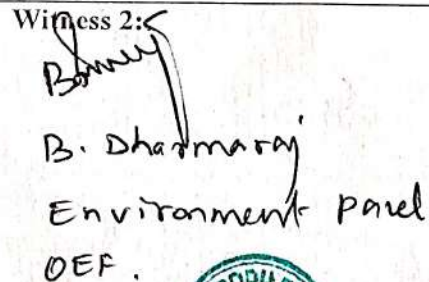 Witness 2:
B. Dharmaraj
Environment Panel
OEF.